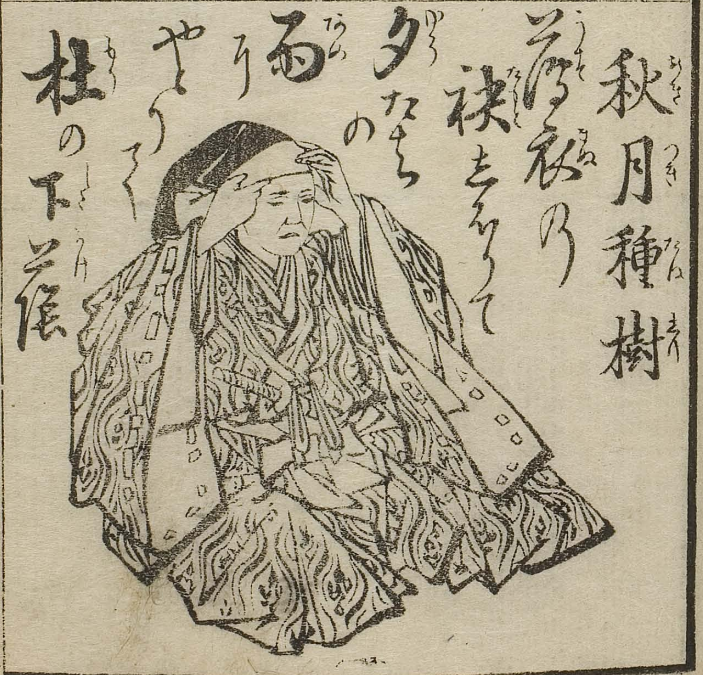 秋月種樹
薄衣の
袂しほりて
夕たち
の
雨
やとり
杜の下蔭